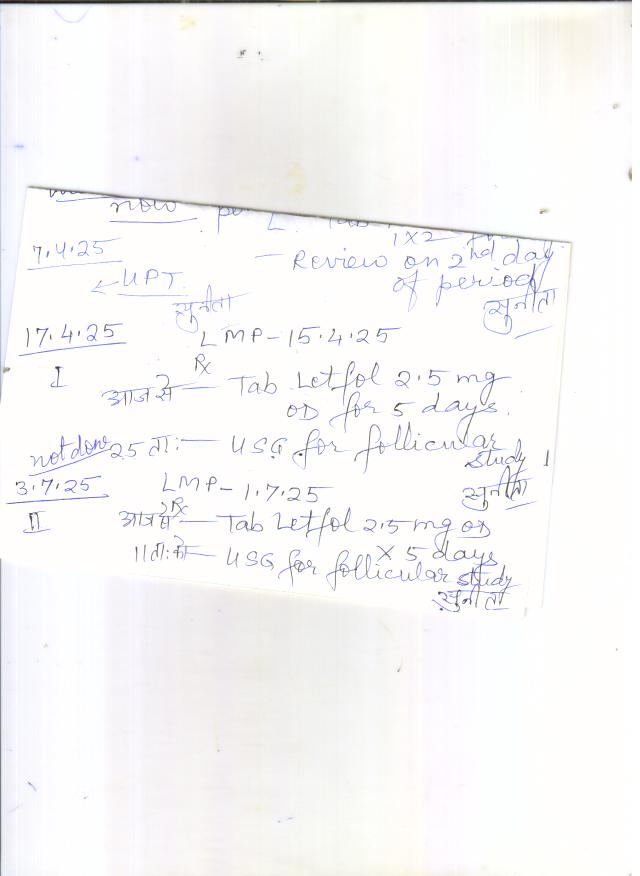 now
7.4.25
1x2
- Review on 2nd day
of period
UPT
सुनीता
सुनीता
17.4.25
LMP-15.4.25
Rx
I
आज से - Tab Letfol 2.5 mg
OD for 5 days.
not done 25 ता:- USG for follicular
study 1
3.7.25
LMP-1.7.25
सुनीता
Rx
II
आज से - Tab Letfol 2.5 mg OD
X 5 days
11 ता: को - USG for follicular study
सुनीता